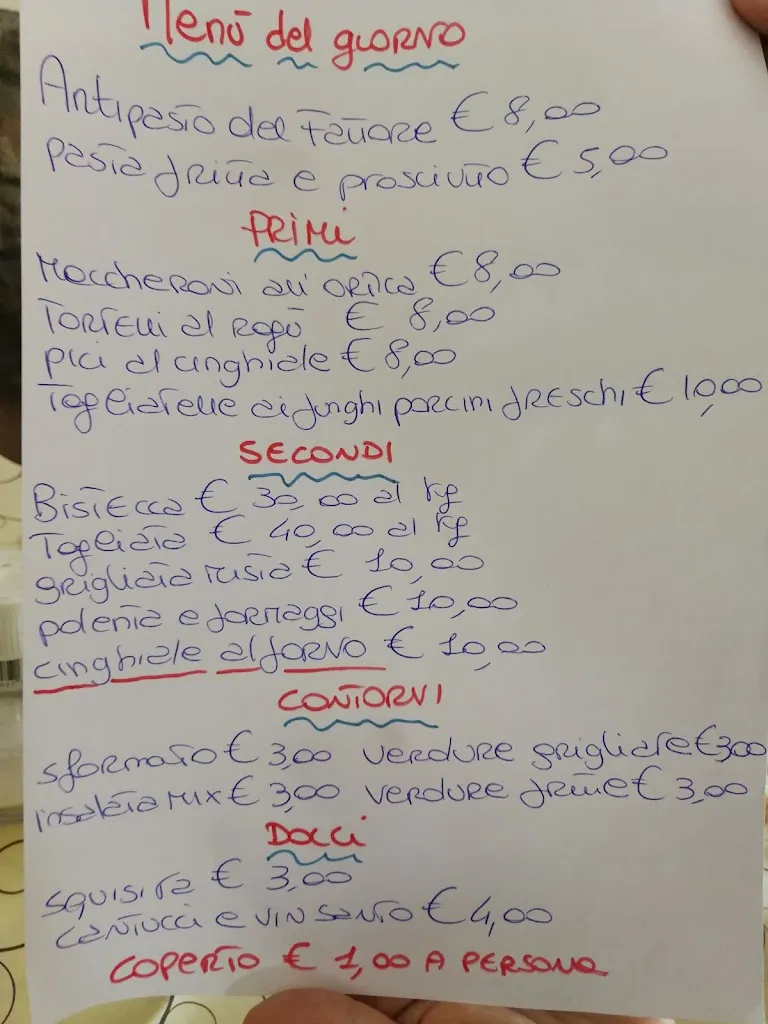 Menù del giorno
Antipasto del Fattore € 8,00
pasta fritta e prosciutto € 5,00
PRIMI
Maccheroni all'ortica € 8,00
Tortelli al ragù € 8,00
pici al cinghiale € 8,00
Tagliatelle ai funghi porcini freschi € 10,00
SECONDI
Bistecca € 30,00 al kg
Tagliata € 40,00 al kg
grigliata mista € 10,00
polenta e formaggi € 10,00
cinghiale al forno € 10,00
CONTORNI
sformato € 3,00 verdure grigliate € 3,00
insalata mix € 3,00 verdure fritte € 3,00
DOLCI
squisita € 3,00
cantucci e vin santo € 4,00
COPERTO € 1,00 A PERSONA